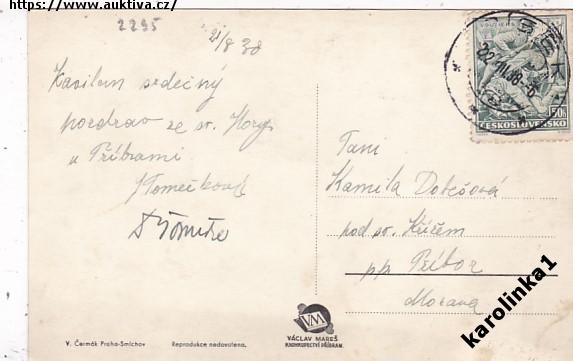 https://www.auktiva.cz/
2295
21/8 38
Zasílám srdečný
pozdrav ze sv. Hory
u Příbrami
J Tomečková
Paní
Kamila Dobešová
pod sv. Křížem
pp. Příbor
Morava
ČESKOSLOVENSKO
50h
VM
VÁCLAV MAREŠ
KNIHKUPECTVÍ PŘÍBRAM.
V. Čermák Praha-Smíchov
Reprodukce nedovolena.
karolinka1